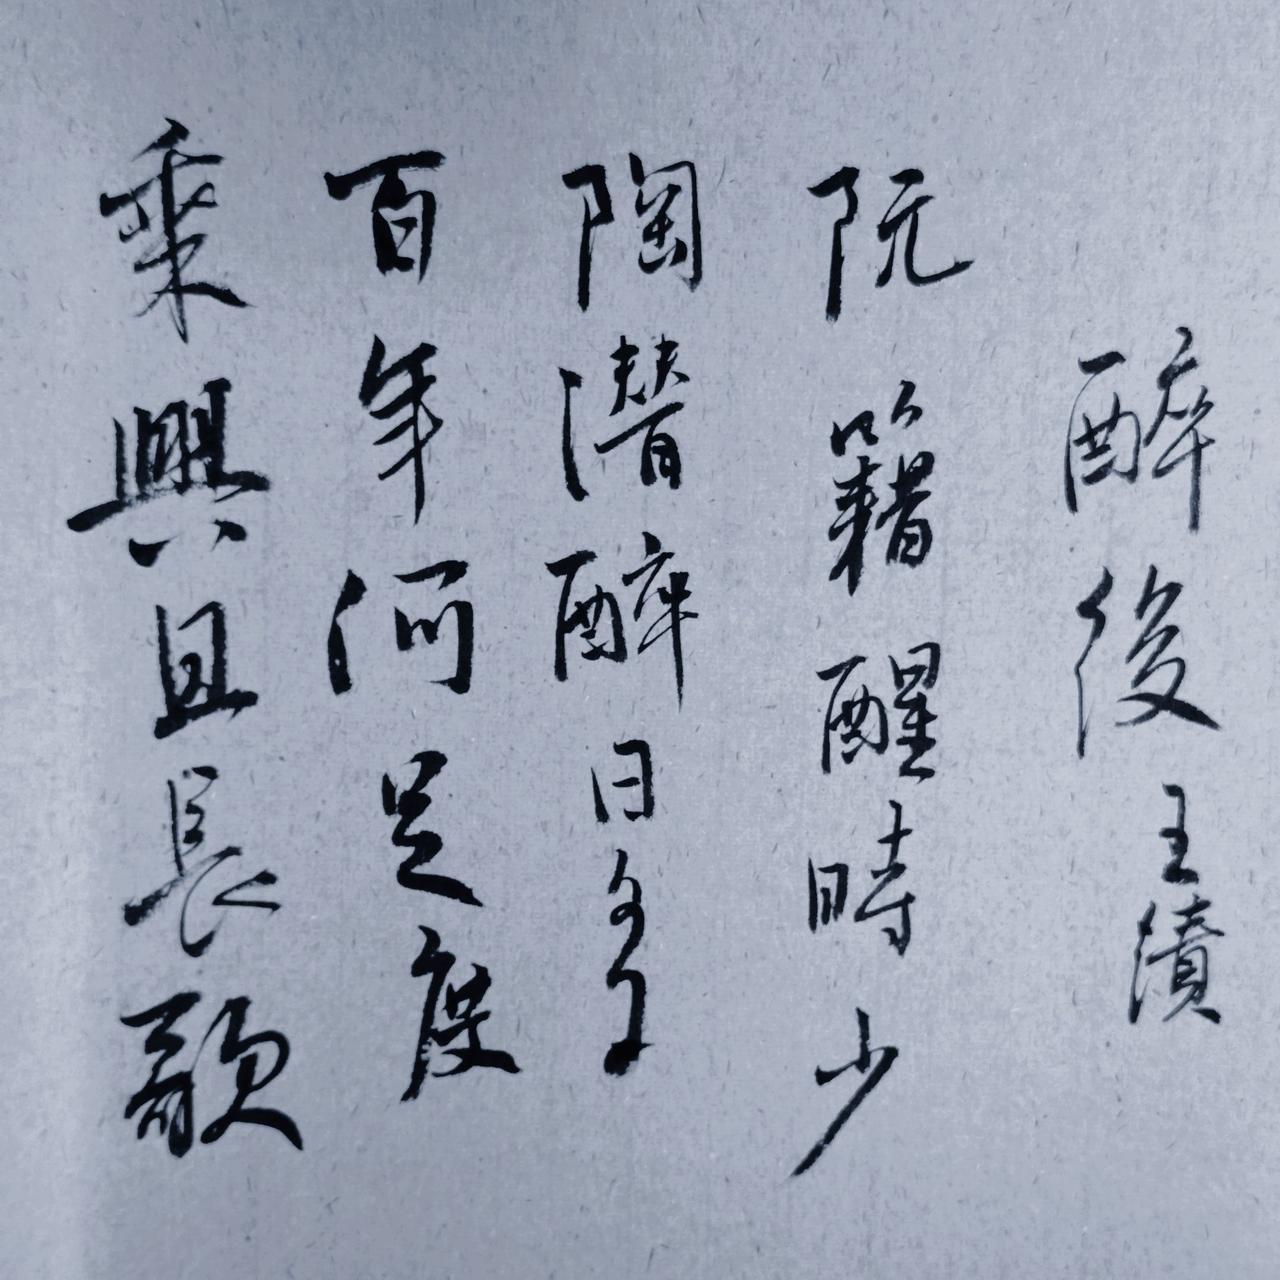 醉後 王績
阮籍醒時少
陶潛醉日多
百年何足度
乘興且長歌